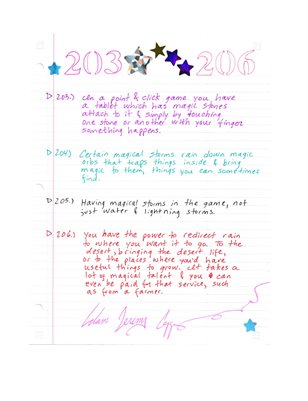 203 206
203.) In a point & click game you have
a tablet which has magic stones
attach to it & simply by touching
one stone or another with your finger
something happens.
204.) Certain magical storms rain down magic
orbs that traps things inside & bring
magic to them, things you can sometimes
find.
205.) Having magical storms in the game, not
just water & lightning storms.
206.) You have the power to redirect rain
to where you want it to go To the
desert, bringing the desert life,
or to the places where you'd have
useful things to grow. It takes a
lot of magical talent & you & can
even be paid for that service, such
as from a farmer.